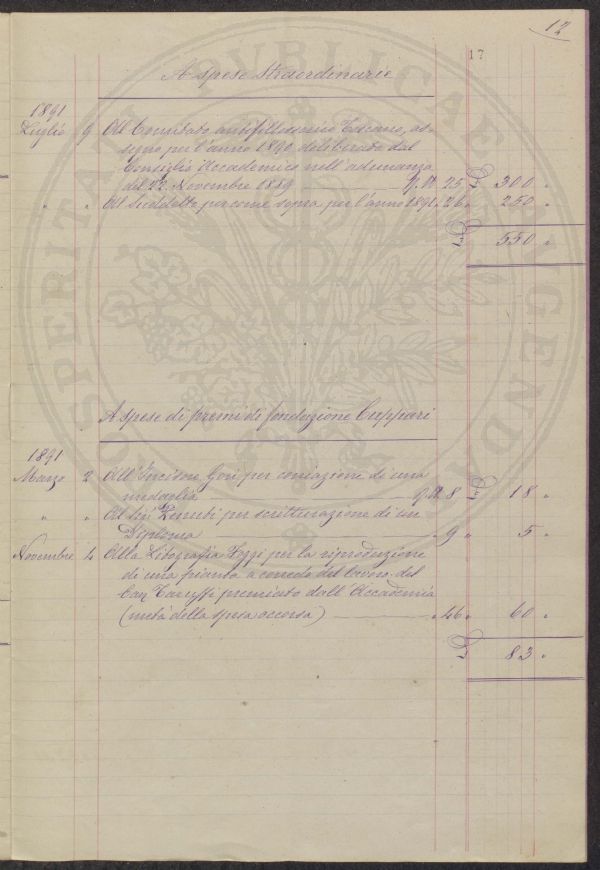 12
17
A spese Straordinarie
1891
Luglio 9 Al Comitato antifillosserico Toscano, as-
segno per l'anno 1890 deliberato dal
Consiglio Accademico nell'adunanza
del 22 Novembre 1889 25 £ 300 "
" " Al Suddetto per come sopra per l'anno 1891 " 26 " 250 "
£ 550 "
A spese di premi di fondazione Cuppari
1891
Marzo 2 All'Incisore Gori per coniazione di una
medaglia 8 £ 18 "
" " Al Sig. per scritturazione di un
Diploma " 9 " 5 "
Novembre 4 Alla Litografia per la riproduzione
di una pianta a corredo del lavoro del
Cav. Taruffi premiato dall'Accademia
(metà della spesa occorsa) " 46 " 60 "
£ 83 "
PROSPERITATI PVBLICAE AVGENDAE